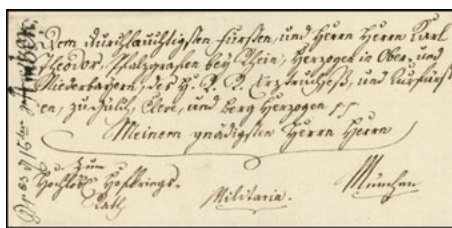 Dem Durchläuchtigsten Fürsten, und Herrn Herrn Karl
Theodor, Pfalzgrafen bey Rhein, Herzogen in Ober- und
Niederbayern, des H. R. R. Erztruchseß, und Kurfürst
en, zu Jülich, Cleve, und Berg Herzogen
Meinem gnädigsten Herrn Herrn
Zum
Hochlöbl. Hofkriegs-
Rath
Militaria.
München